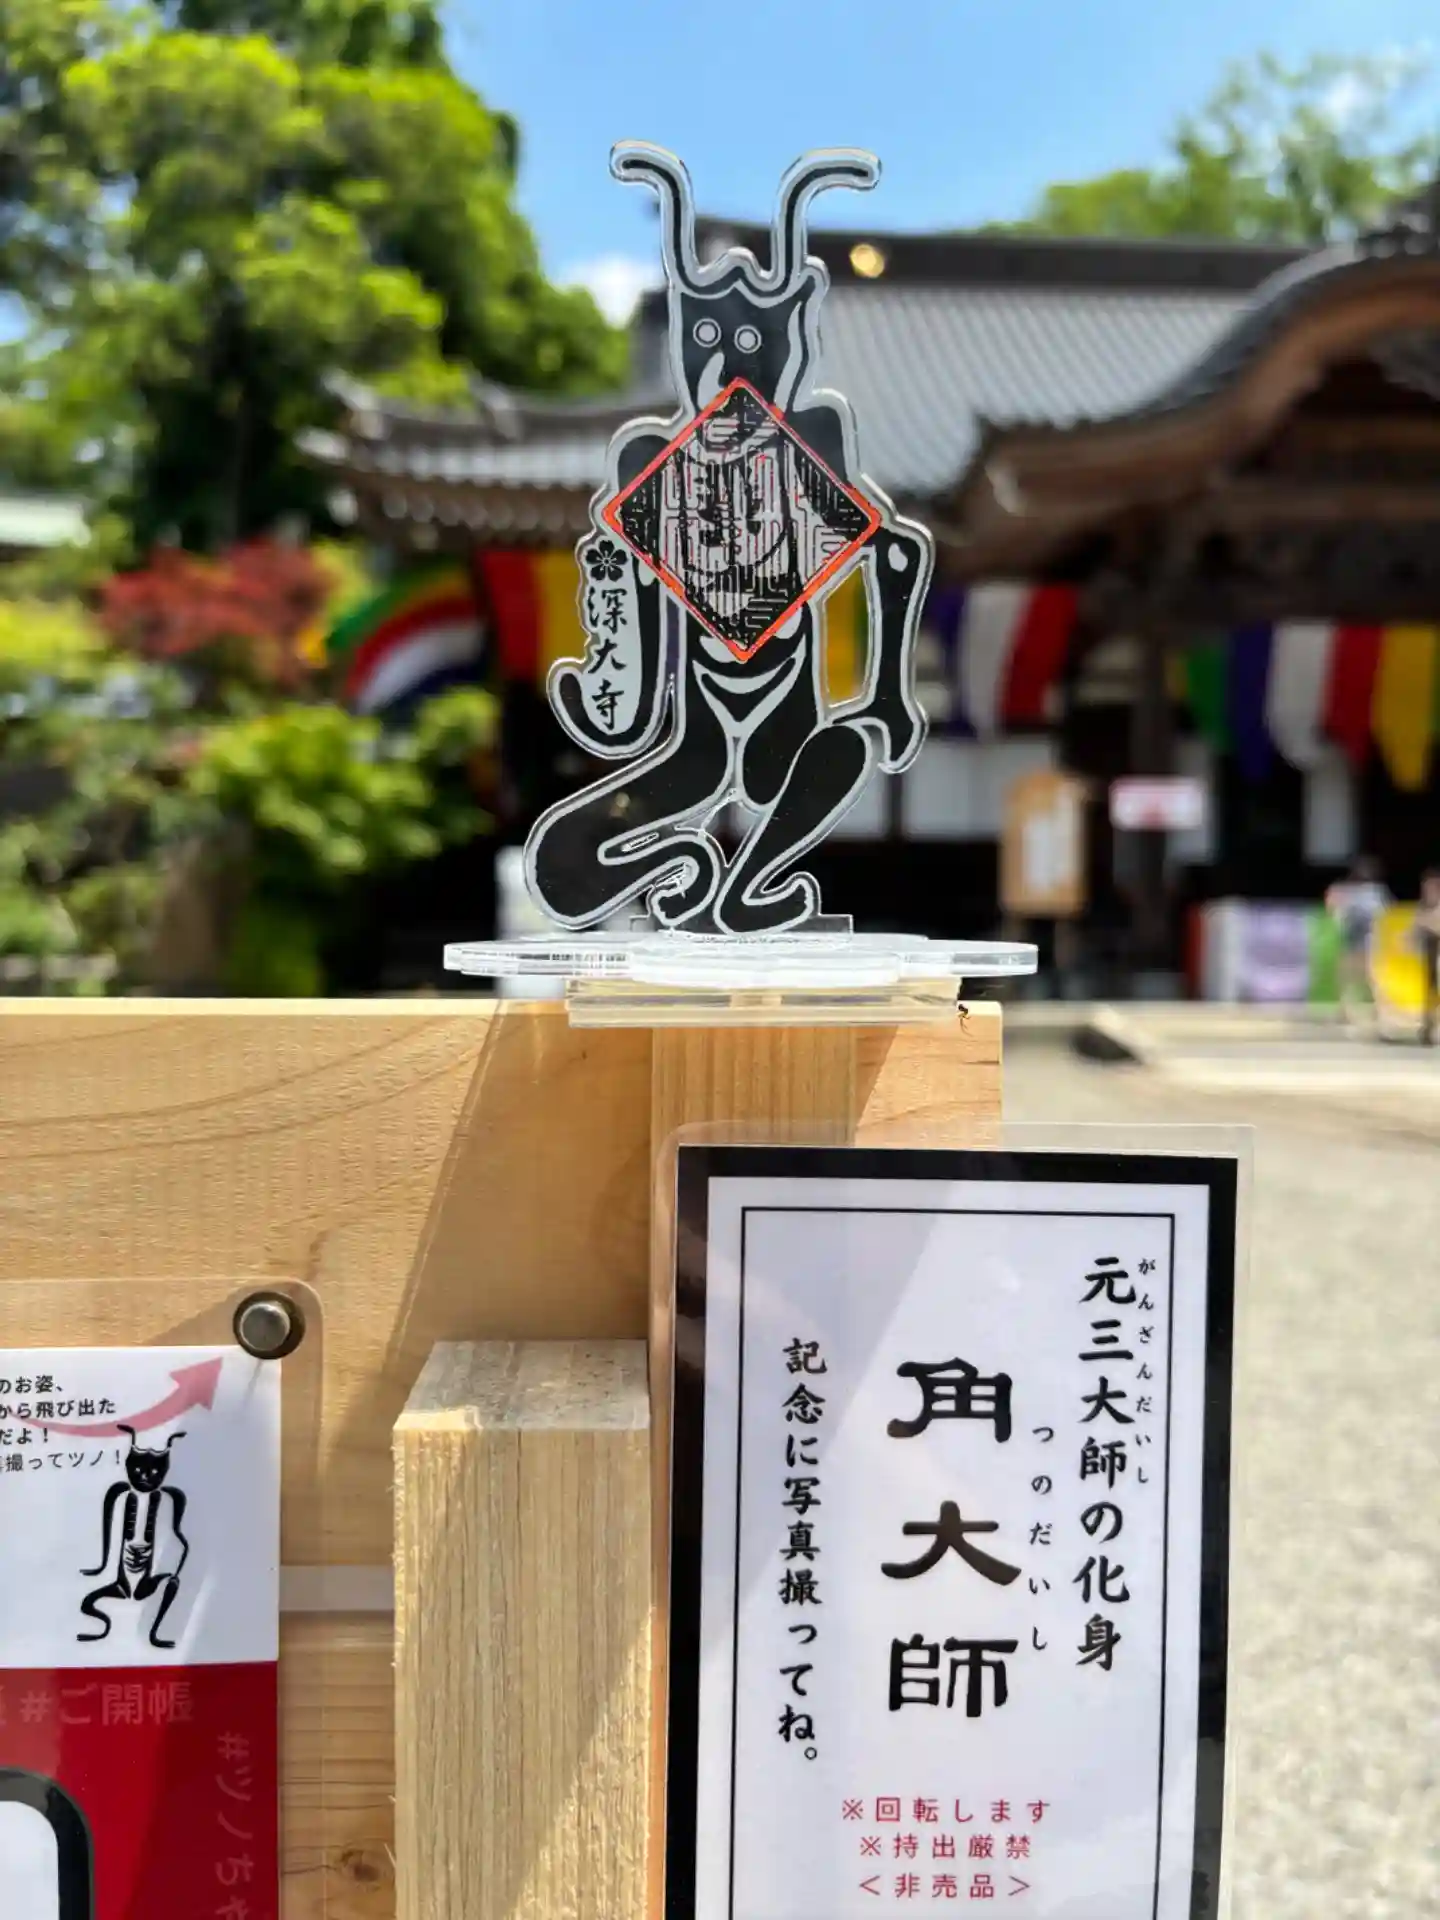 深大寺
元三大師の化身
がんざんだいし
角大師
つのだいし
記念に写真撮ってね。
※回転します
※持出厳禁
＜非売品＞
のお姿、
から飛び出た
だよ！
撮ってツノ！
#ご開帳
#ツノちゃ